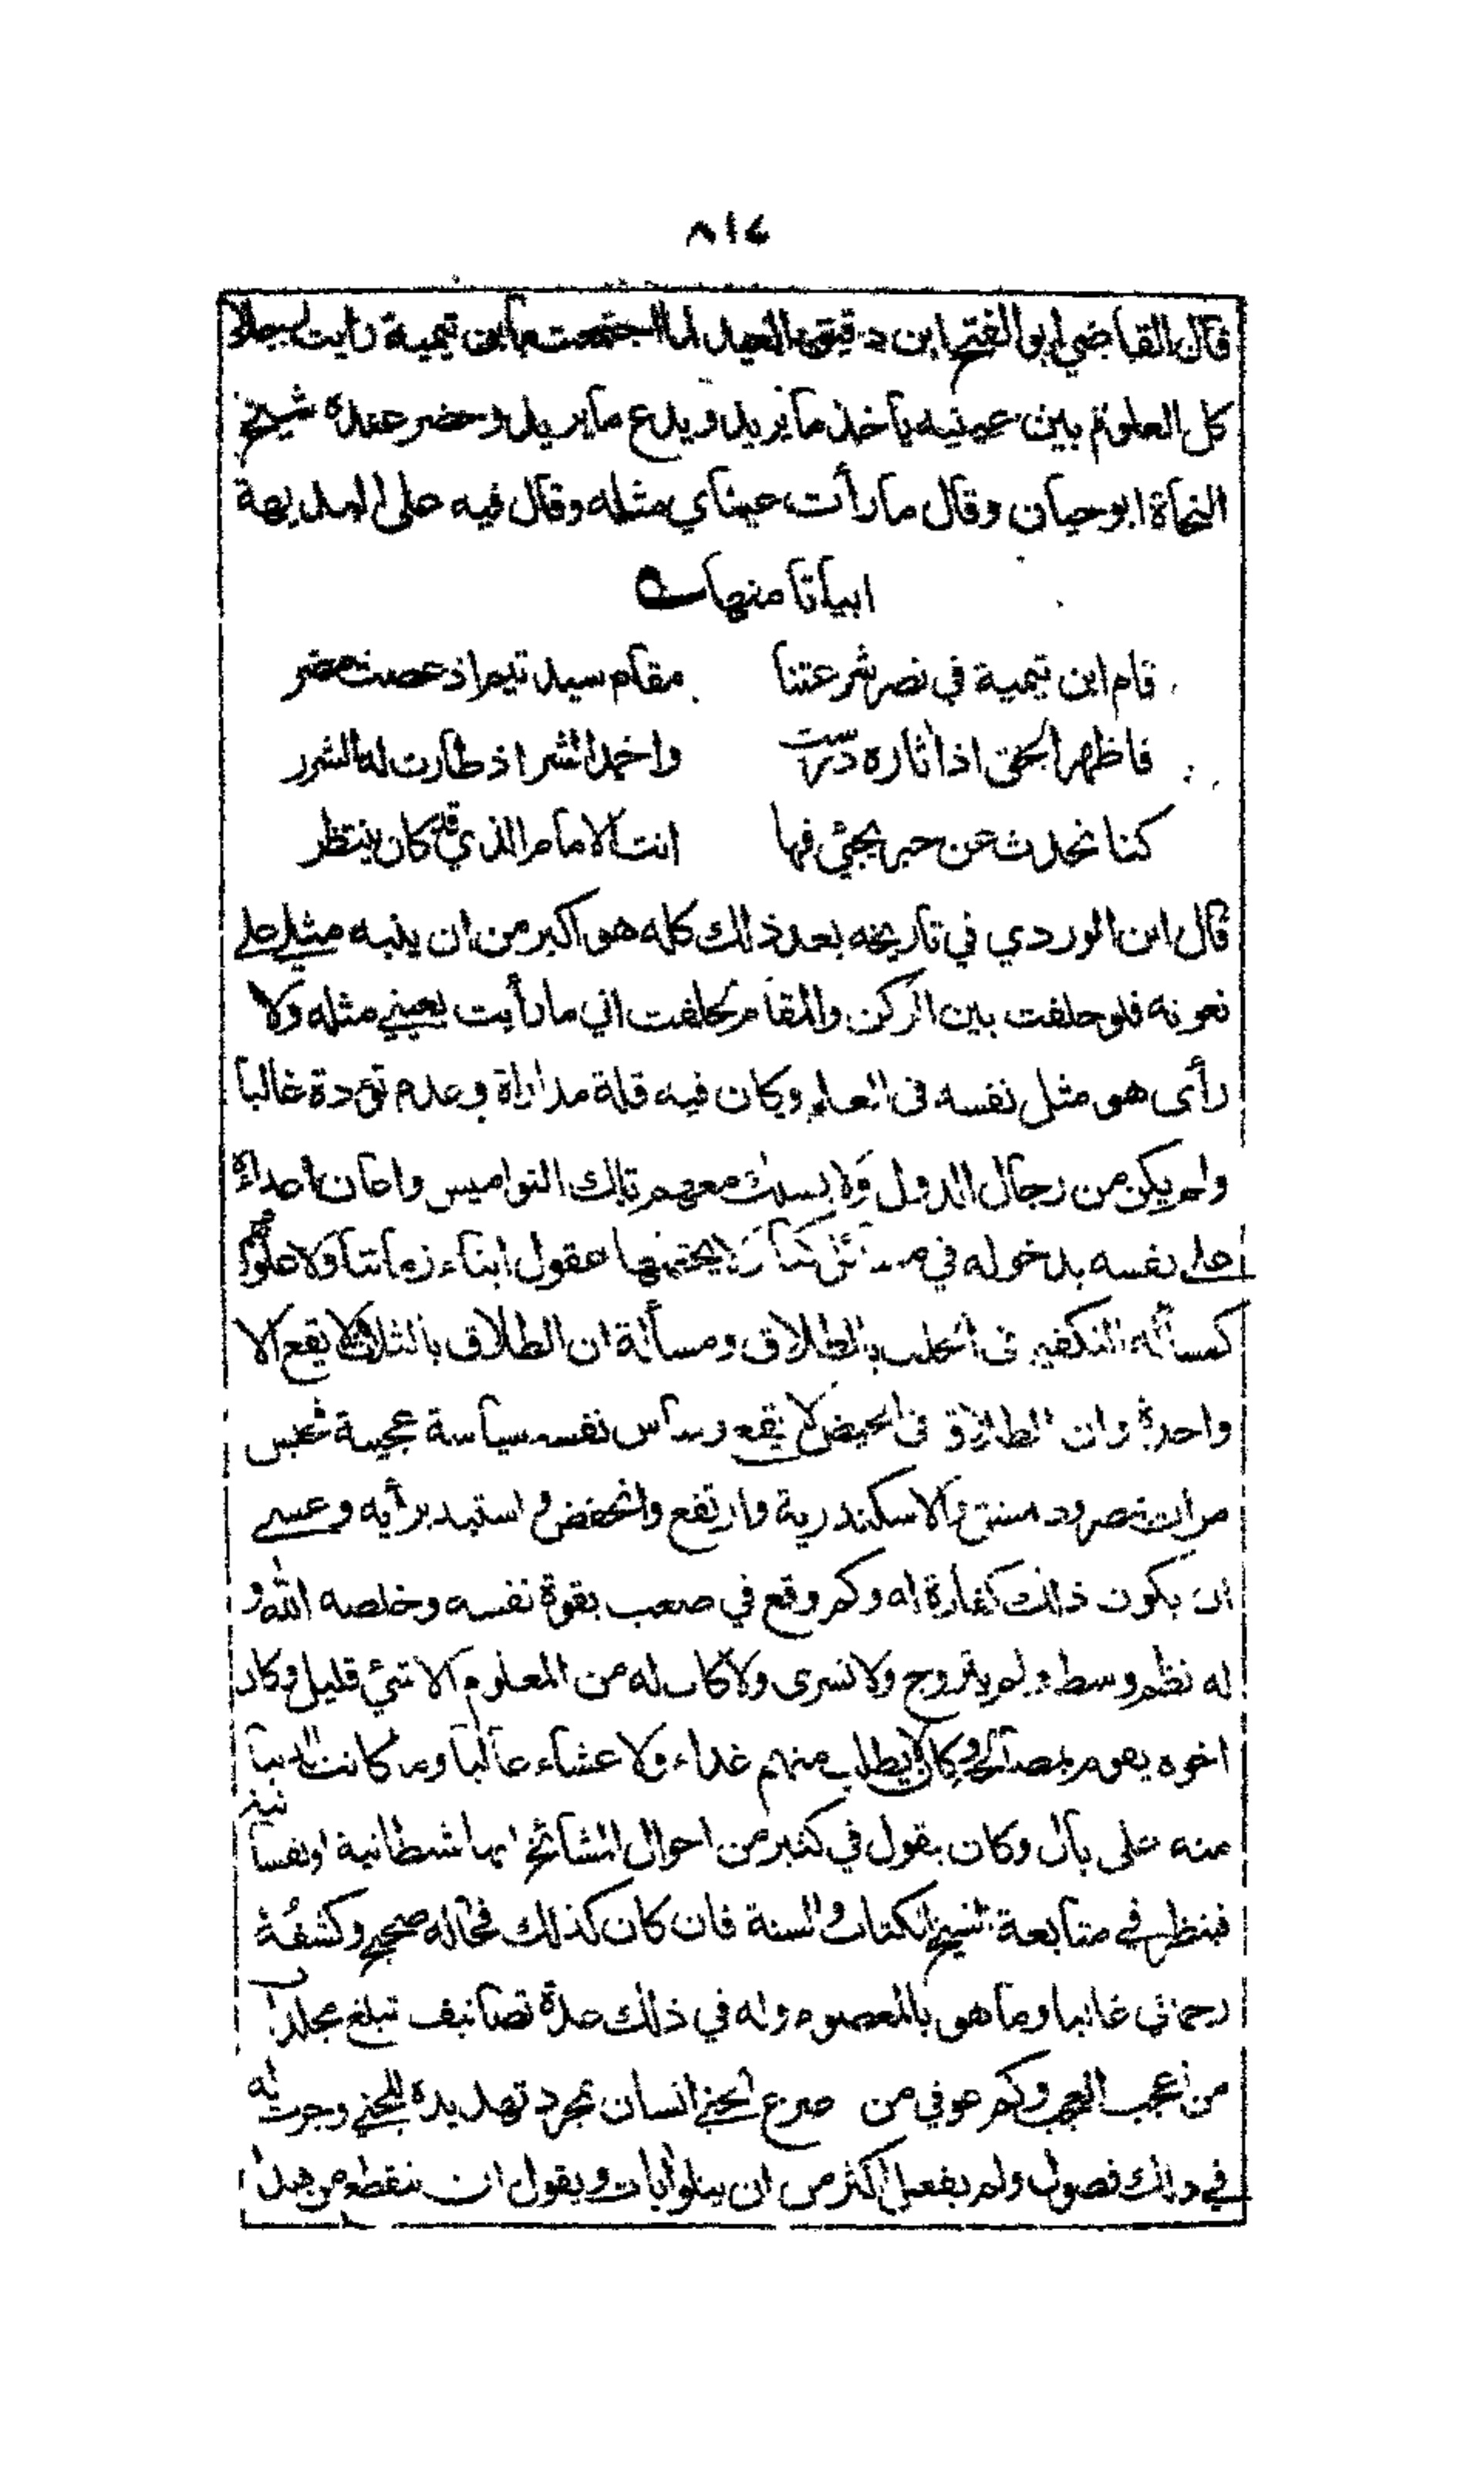 ٨١٤
قال القاضي ابو الفتح ابن دقيق العيد لما اجتمعت بابن تيمية رايت رجلا
كل العلوم بين عينيه ياخذ ما يريد ويدع ما يريد وحضر عنده شيخ
النحاة ابو حيان وقال ما رأت عيناي مثله وقال فيه على البديهة
ابياتا منها
قام ابن تيمية في نصر شرعتنا مقام سيد تيم اذ عصت مضر
فاظهر الحق اذ اثاره درست واخمد الشر اذ طارت له الشرر
كنا نحدث عن حبر يجئ فها انت الامام الذي قد كان ينتظر
قال ابن الوردي في تاريخه بعد ذلك كله هو اكبر من ان ينبه مثلي على
نعوته فلو حلفت بين الركن والمقام لحلفت اني ما رأيت بعيني مثله ولا
رأى هو مثل نفسه في العلم وكان فيه قلة مداراة وعدم تؤدة غالبا
ولم يكن من رجال الدول ولا يسلك معهم تلك النواميس واعان اعداءه
على نفسه بدخوله في مسائل كبار لا يحتملها عقول ابناء زماننا ولا علومهم
كمسألة التكفير في الحلف بالطلاق ومسألة ان الطلاق بالثلاث لا يقع الا
واحدة وان الطلاق في الحيض لا يقع وساس نفسه سياسة عجيبة فحبس
مرات بمصر ودمشق والاسكندرية وارتفع وانخفض واستبد برأيه وعسى
ان يكون ذلك كفارة له وكم وقع في صعب بقوة نفسه وخلصه الله و
له نظم وسط ولم يتزوج ولا تسرى ولا كان له من المعلوم الا شئ قليل وكان
اخوه يقوم بمصالحه وكان لا يطلب منهم غداء ولا عشاء غالبا وما كانت الدنيا
منه على بال وكان يقول في كثير من احوال المشائخ انها شيطانية او نفسانية
فينظر في متابعة الشيخ الكتاب والسنة فان كان كذلك فحاله صحيح وكشفه
رحماني غالبا وما هو بالمعصوم وله في ذلك عدة تصانيف تبلغ مجلدات
من اعجب العجب وكم عوفي من صرع الجني انسان بمجرد تهديده للجني وجرت له
في ذلك فصول ولم يفعل اكثر من ان يتلو آيات ويقول ان تنقطع من هذا